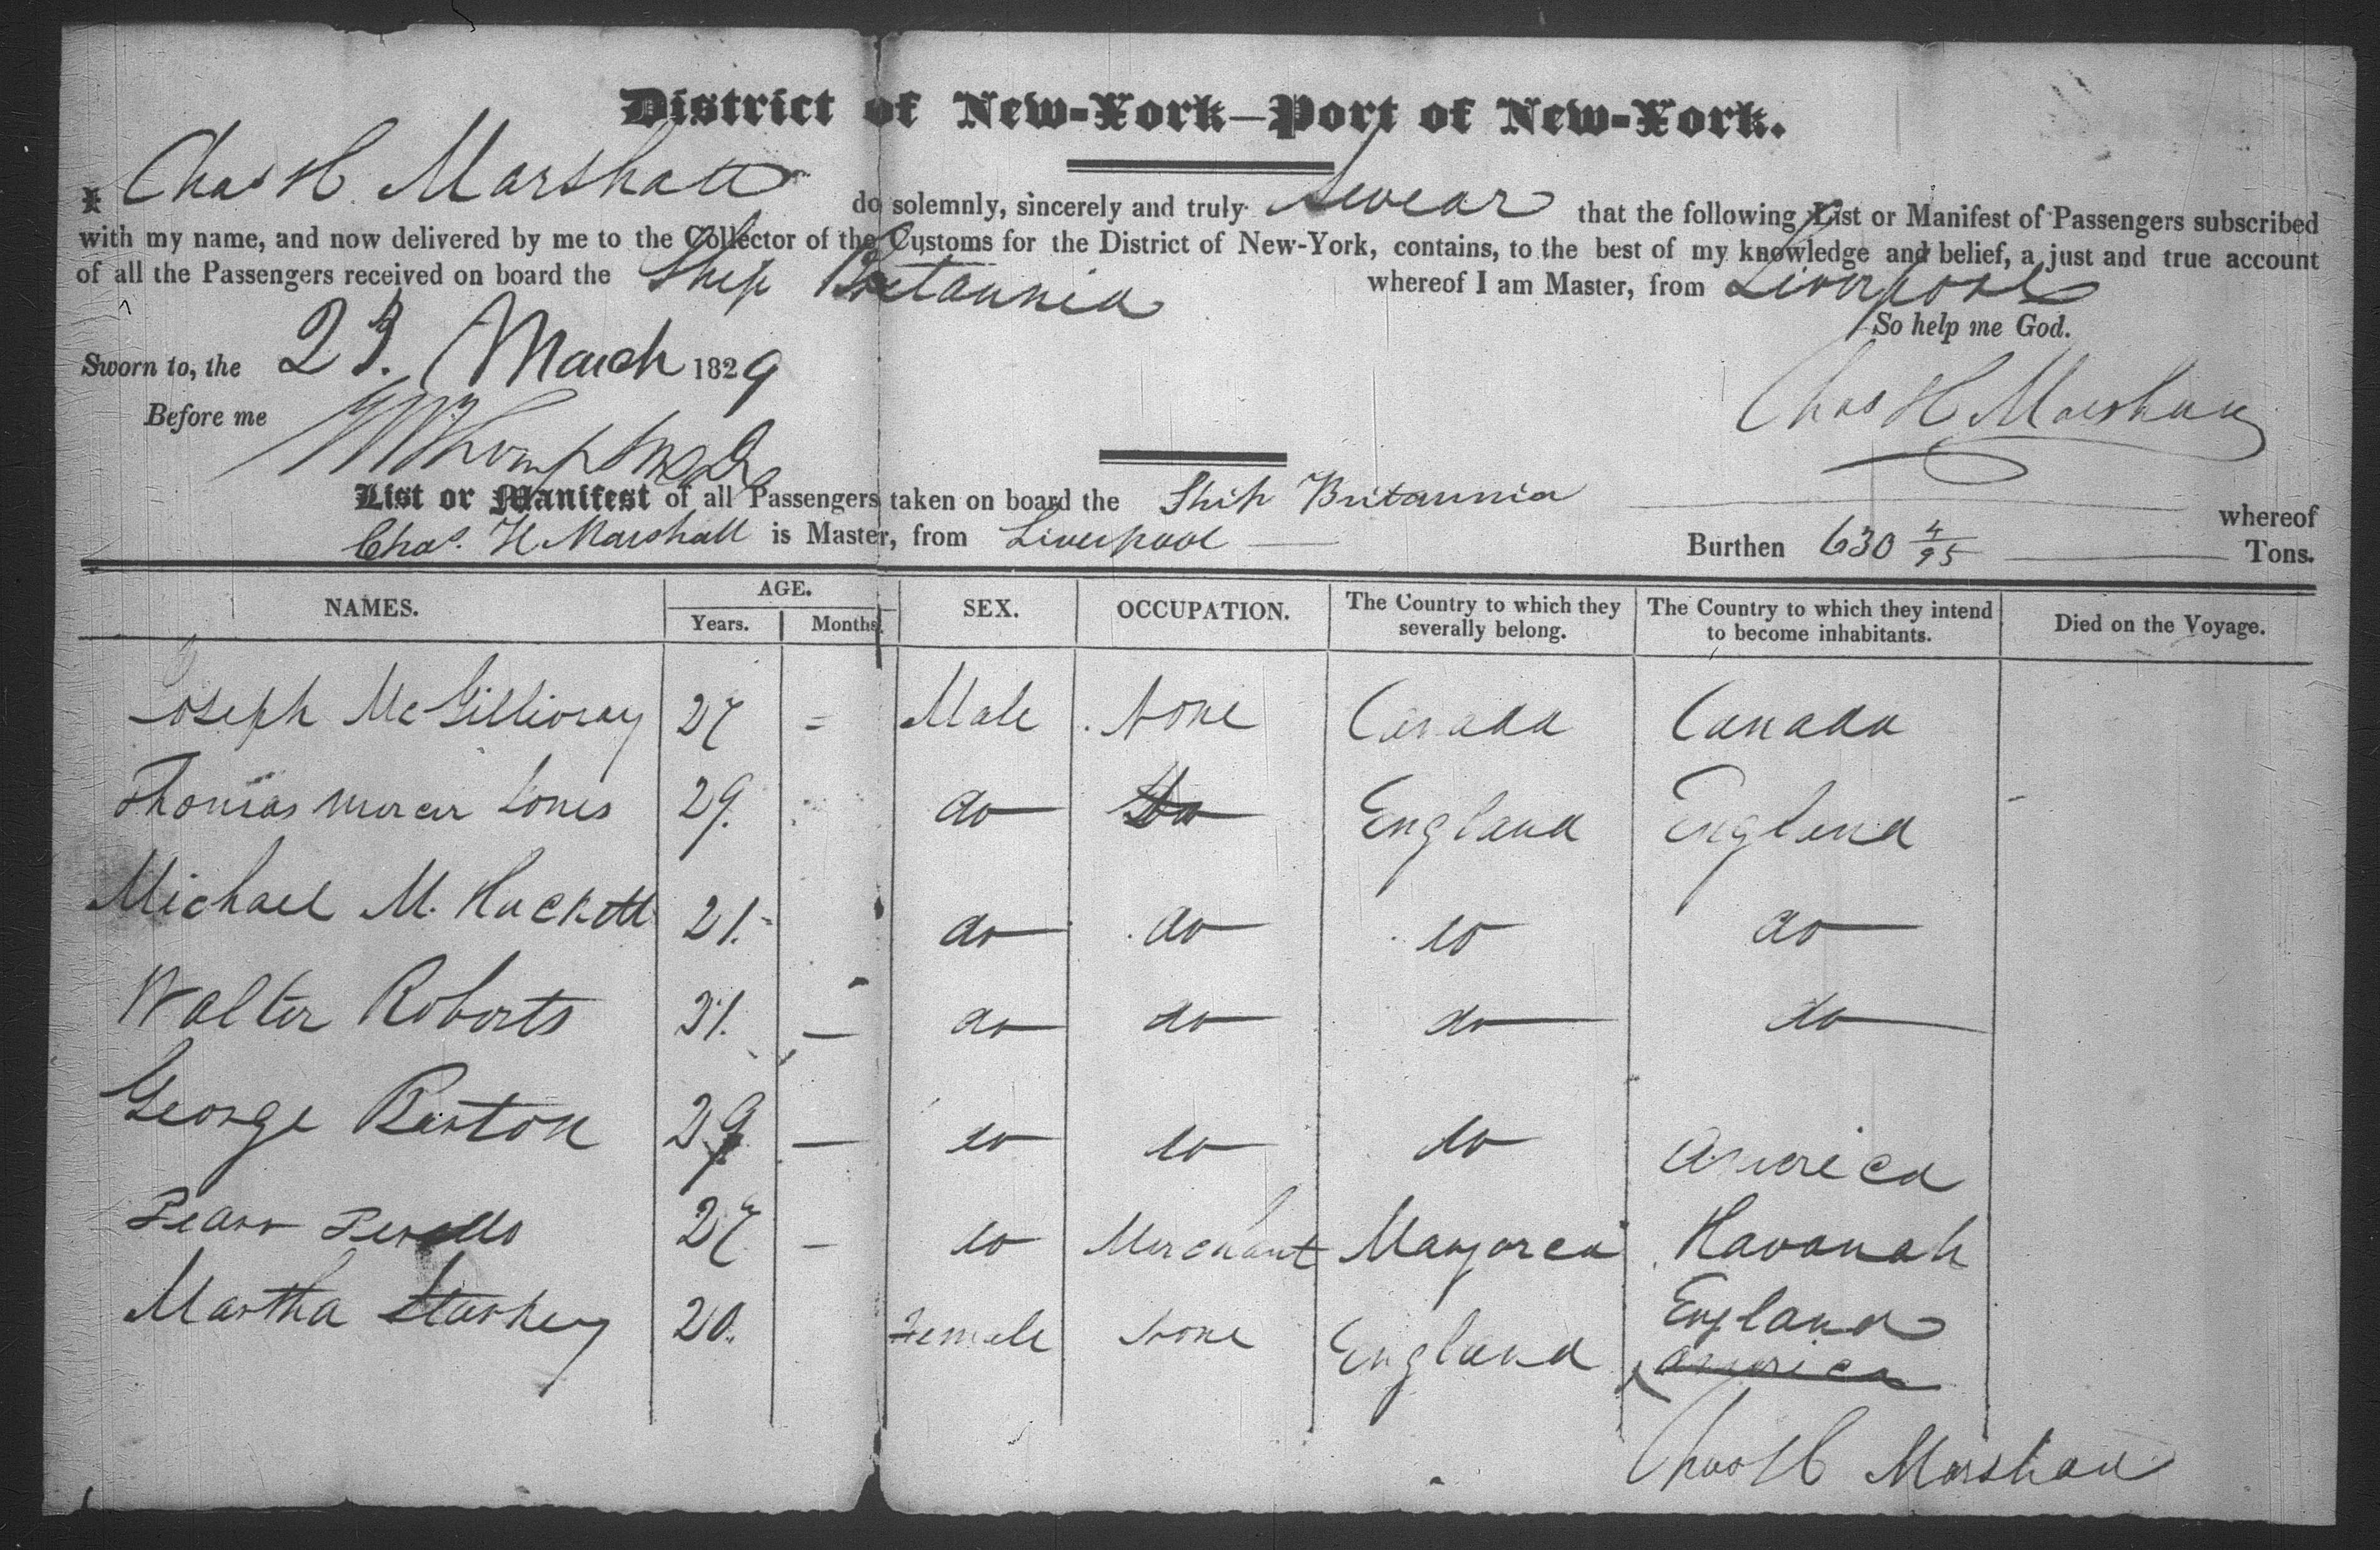 District of New-York—Port of New-York.
I Chas H. Marshall do solemnly, sincerely and truly Swear that the following List or Manifest of Passengers subscribed
with my name, and now delivered by me to the Collector of the Customs for the District of New-York, contains, to the best of my knowledge and belief, a just and true account
of all the Passengers received on board the Ship Britannia whereof I am Master, from Liverpool
So help me God.
Sworn to, the 23. March 1829
Chas H Marshall
Before me
List or Manifest of all Passengers taken on board the Ship Britannia whereof
Chas. H Marshall is Master, from Liverpool Burthen 630 4/95 Tons.
NAMES. AGE. Years. Months. SEX. OCCUPATION. The Country to which they severally belong. The Country to which they intend to become inhabitants. Died on the Voyage.
Joseph McGillivray 27 = Male None Canada Canada
Thomas Mercer Jones 29. do Do England England
Michael M. Hackett 21. do do do do
Walter Roberts 31. — do do do do
George Barton 29 — do do do America
27 — do Merchant Mayorca Havanah
Martha Starkey 20. Female None England England
America
Chas H Marshall